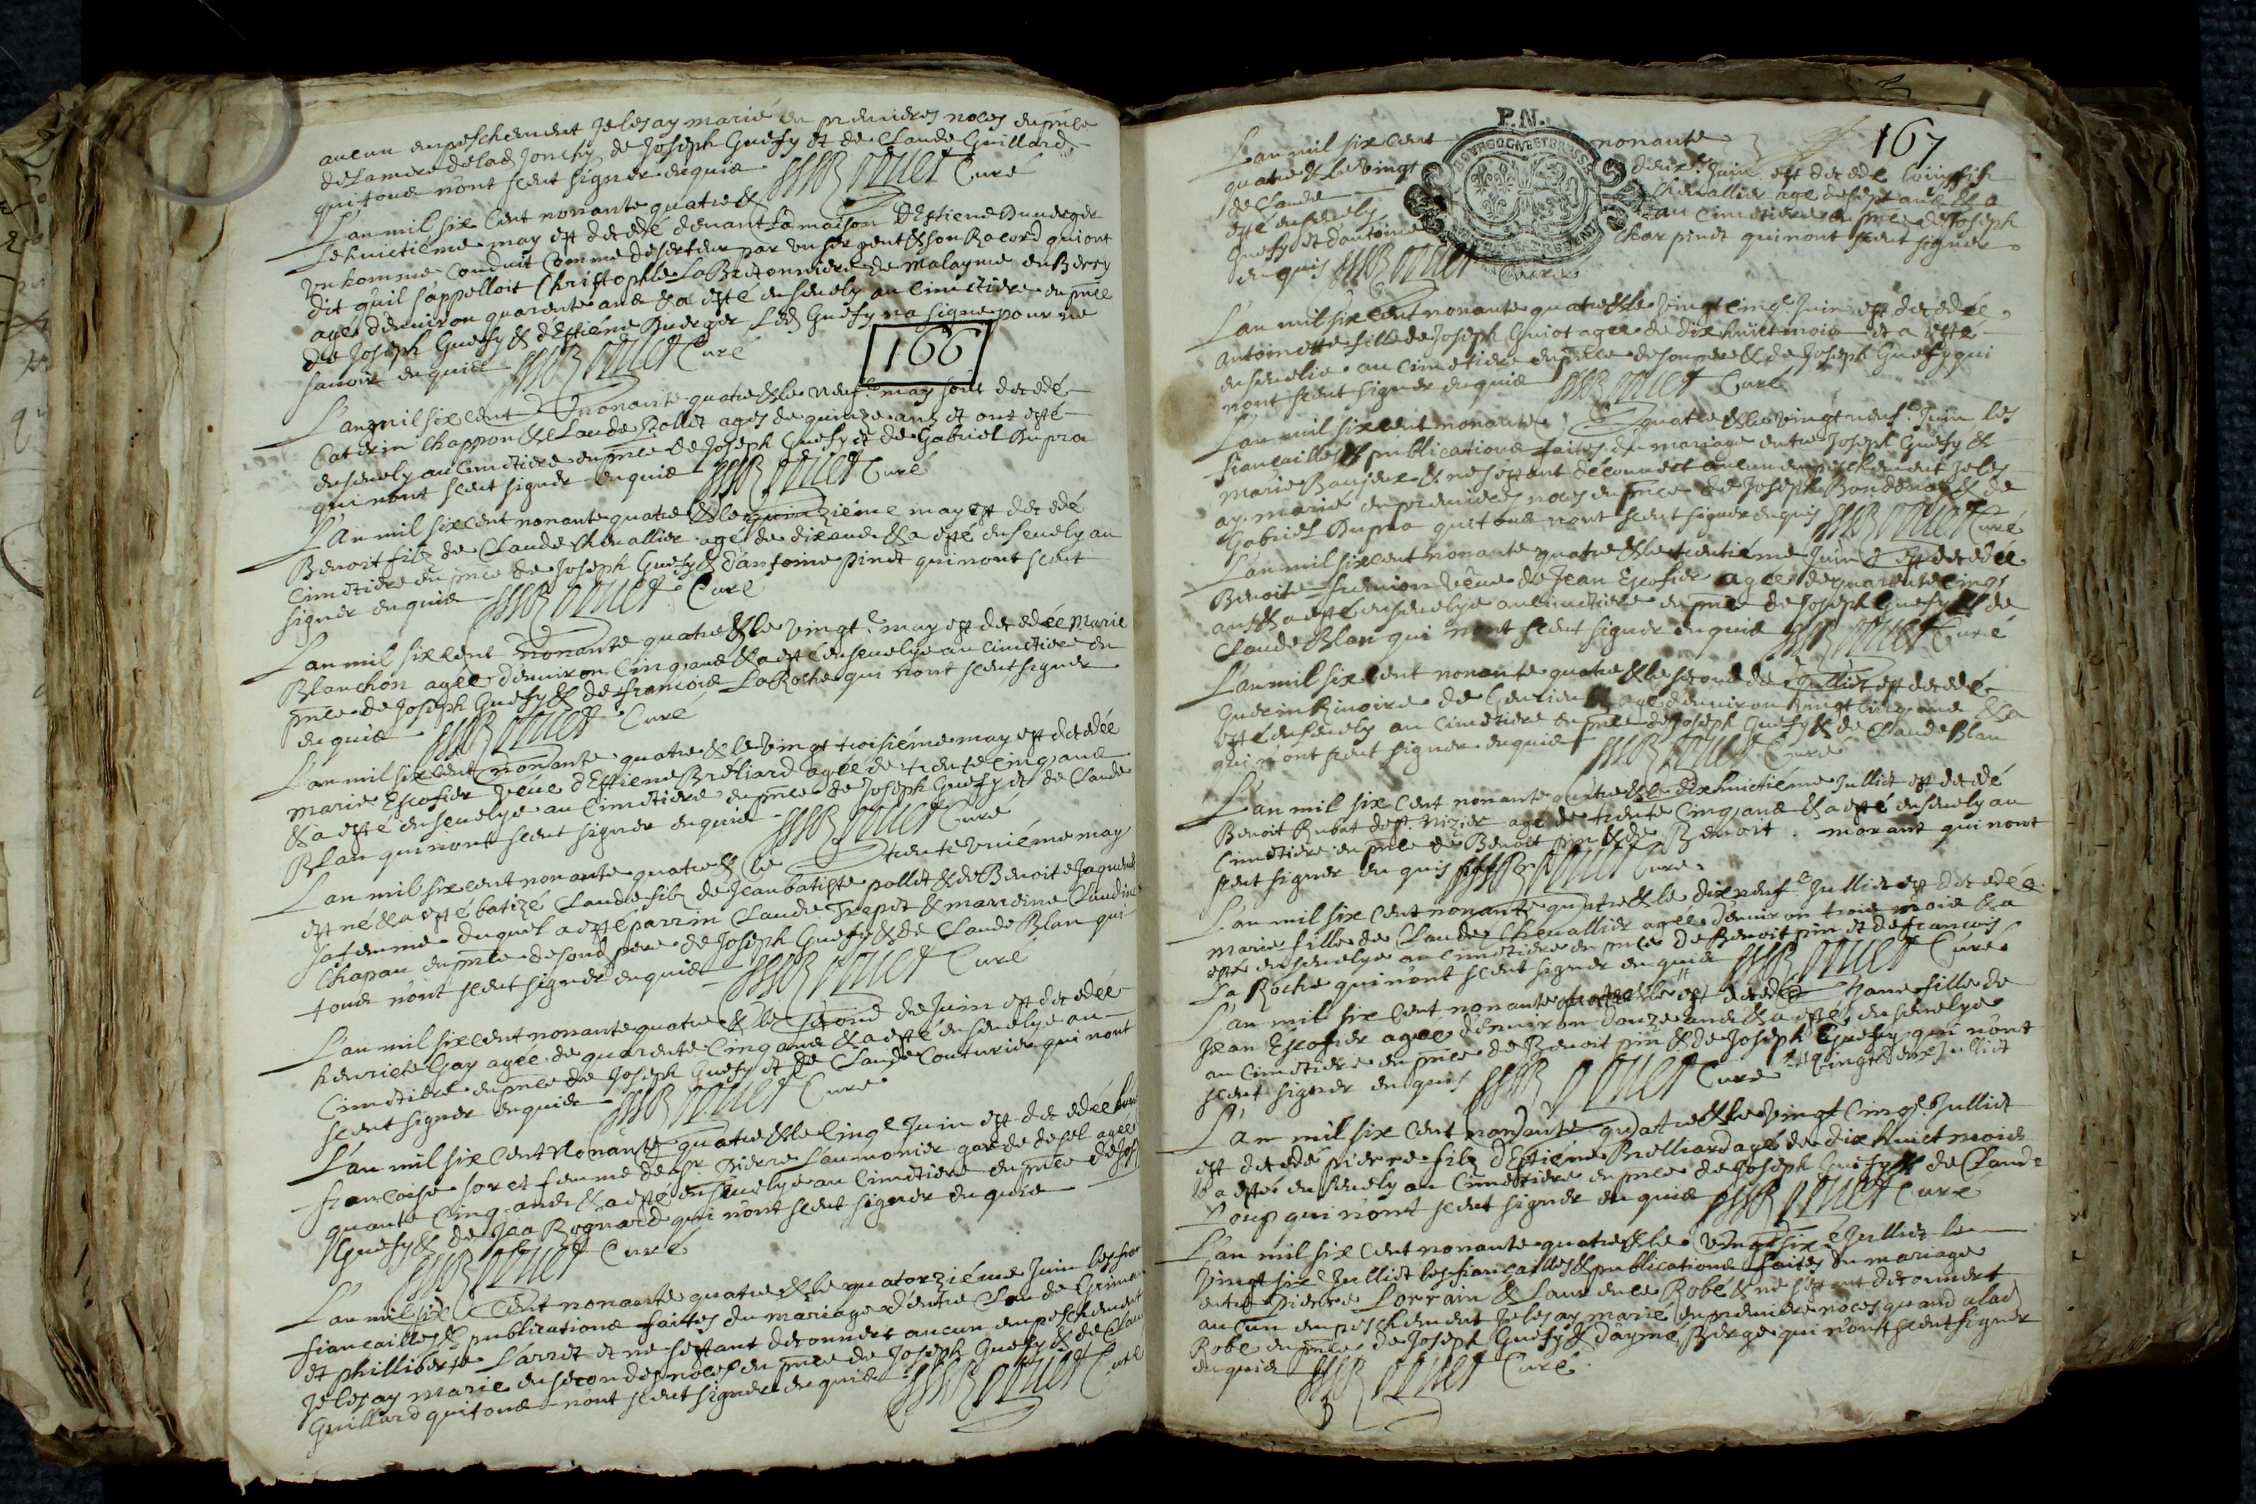 aucun empeschement Je les ay marié en premieres noces en pnce
de la mere de lad Jonchy de Joseph Guefy et de Claude Guillard
qui tous n'ont sceut signer enquis Curé
L'an mil six cent nonante quatre &
le huictiéme may est decedé devant la maison d'Estiene Duverger
vn homme conduit comme deserteur par vn sergent & son Racord qui ont
dit qu'il s'appelloit Christophle La Bretonniere de Malayme en Berry
agé d'environ quarente ans & a esté ensevely au cimetiere en pnce
de Joseph Guefy & d'Estiéne Duerger Led Guefy n'a signé pour ne
savoir enquis Curé
166
L'an mil six cent nonante quatre & le neufe may sont decedé
Caterin Chappon & Claude Pollet agés de quinze ans et ont esté
ensevely au cimetiere en pnce de Joseph Guefy et de Gabriel Dupra
qui n'ont sceut signer enquis Curé
L'an mil six cent nonante quatre & le quinziéme may est decedé
Benoit filz de Claude Chevallier agé de dix ans & a esté ensevely au
cimetiere en pnce de Joseph Guefy & d'antoine Pinet qui n'ont sceut
signer enquis Curé
L'an mil six cent nonante quatre & le vingte may est decedée Marie
Blanchon agée d'environ cinq ans & a esté ensevelye au cimetiere en
pnce de Joseph Guefy & de francois La Roche qui n'ont sceut signer
enquis Curé
L'an mil six cent nonante quatre & le vingt troisiéme may est decedée
Marie Escofier veéue d'Estiene Breliard agée de trente cinq ans
& a esté ensevelye au cimetiere en pnce de Joseph Guefy et de Claude
Blan qui n'ont sceut signer enquis Curé
L'an mil six cent nonante quatre & le trente vniéme may
est né & a esté batizé Claude filz de Jean batiste pollet & de Benoite Jaquene
sa femme duquel a esté parrin Claude Trepet & marreine Claudine
Chapau en pnce de son pere de Joseph Guefy & de Claude Blan qui
tous n'ont sceut signer enquis Curé
L'an mil six cent nonante quatre & le second de Juin est decedée
henriete Gay agée de quarente cinq ans & a esté ensevelye au
cimetiere en pnce de Joseph Guefy et de Claude Couturier qui n'ont
sceut signer enquis Curé
L'an mil six cent nonante quatre & le cinqe Juin est decedée
francoise soret femme de Sr Pierre Laumonier garde de sel agée
quante cinq ans & a esté ensevelye au cimetiere en pnce de Jos
Guefy & de Jea Rognard qui n'ont sceut signer enquis
Curé
L'an mil six cent nonante quatre & le quatorziéme Juin les
fiancailles & publications faites du mariage d'entre Claude Griman
et philliberte Larret et ne s'estant decouvert aucun empeschement
Je les ay marié en secondes noces en pnce de Joseph Guefy & de Clau
Guillard qui tous n'ont sceut signer enquis Curé
P.N.
167
L'an mil six cent nonante
quatre & le vingt deuxe Juin est decedé
de Claude Chevallier agé de sept ans & a
esté ensevely au cimetiere en pnce de Joseph
Guefy et d'antoine Charpinet qui n'ont sceut signer
enquis Curé
L'an mil six cent nonante quatre & le vingt cinqe Juin est decedée
antoinette fille de Joseph Guiot agée de dix huict mois et a esté
ensevelie au cimetiere en pnce de son pere & de Joseph Guefy qui
n'ont sceut signer enquis Curé
L'an mil six cent nonante quatre & le vingt neufe Juin les
fiancailles & publications faites du mariage entre Joseph Guefy &
Marie Baujeux & ne s'estant decouvert aucun empeschement Je les
ay marié en premieres noces en pnce de Joseph Bondenat & de
Gabriel Dupra qui tous n'ont sceut signer enquis Curé
L'an mil six cent nonante quatre & le trentiéme Juin est decedée
Benoite fremion véue de Jean Escofier agée de quarente cinq
ans & a esté ensevelye au cimetiere en pnce de Joseph Guefy & de
Claude Blan qui n'ont sceut signer enquis Curé
L'an mil six cent nonante quatre & le second de Julliet est decedé
Guerin Binoire de agé d'environ vingt cinq ans & a
esté ensevely au cimetiere en pnce de Joseph Guefy & de Claude Blan
qui n'ont sceut signer enquis Curé
L'an mil six cent nonante quatre & le dix huictiéme Julliet est decedé
Benoit Rubat de St. Nizier agé de trente cinq ans & a esté ensevely au
cimetiere en pnce de Benoit pin & de Benoit morant qui n'ont
sceut signer enquis Curé
L'an mil six cent nonante quatre & le dix neufe Julliet est decedée
Marie fille de Claude Chevallier agée d'environ trois mois & a
esté ensevelye au cimetiere en pnce de Benoit pin et de francois
La Roche qui n'ont sceut signer enquis Curé
L'an mil six cent nonante quatre & le est decedée Jane fille de
Jean Escofier agée d'environ douze ans & a esté ensevelye
au cimetiere en pnce de Benoit pin & de Joseph Guefy qui n'ont
sceut signer enquis Curé vingt deuxe Julliet
L'an mil six cent nonante quatre & le vingt cinqe Julliet
est decedé pierre filz d'Estiéne Brelliard agé de dix huict mois
& a esté ensevely au cimetiere en pnce de Joseph Guefy & de Claude
Loup qui n'ont sceut signer enquis Curé
L'an mil six cent nonante quatre & le vingt sixe Julliet le
vingt sixe Julliet les fiancailles & publications faites du mariage
entre Pierre Lorrain & Laurence Robé & ne s'estant decouvert
aucun empeschement Je les ay marié en premiere noces quand a lad
Robe en pnce de Joseph Guefy & d'aymé Berge qui n'ont sceut signer
enquis Curé